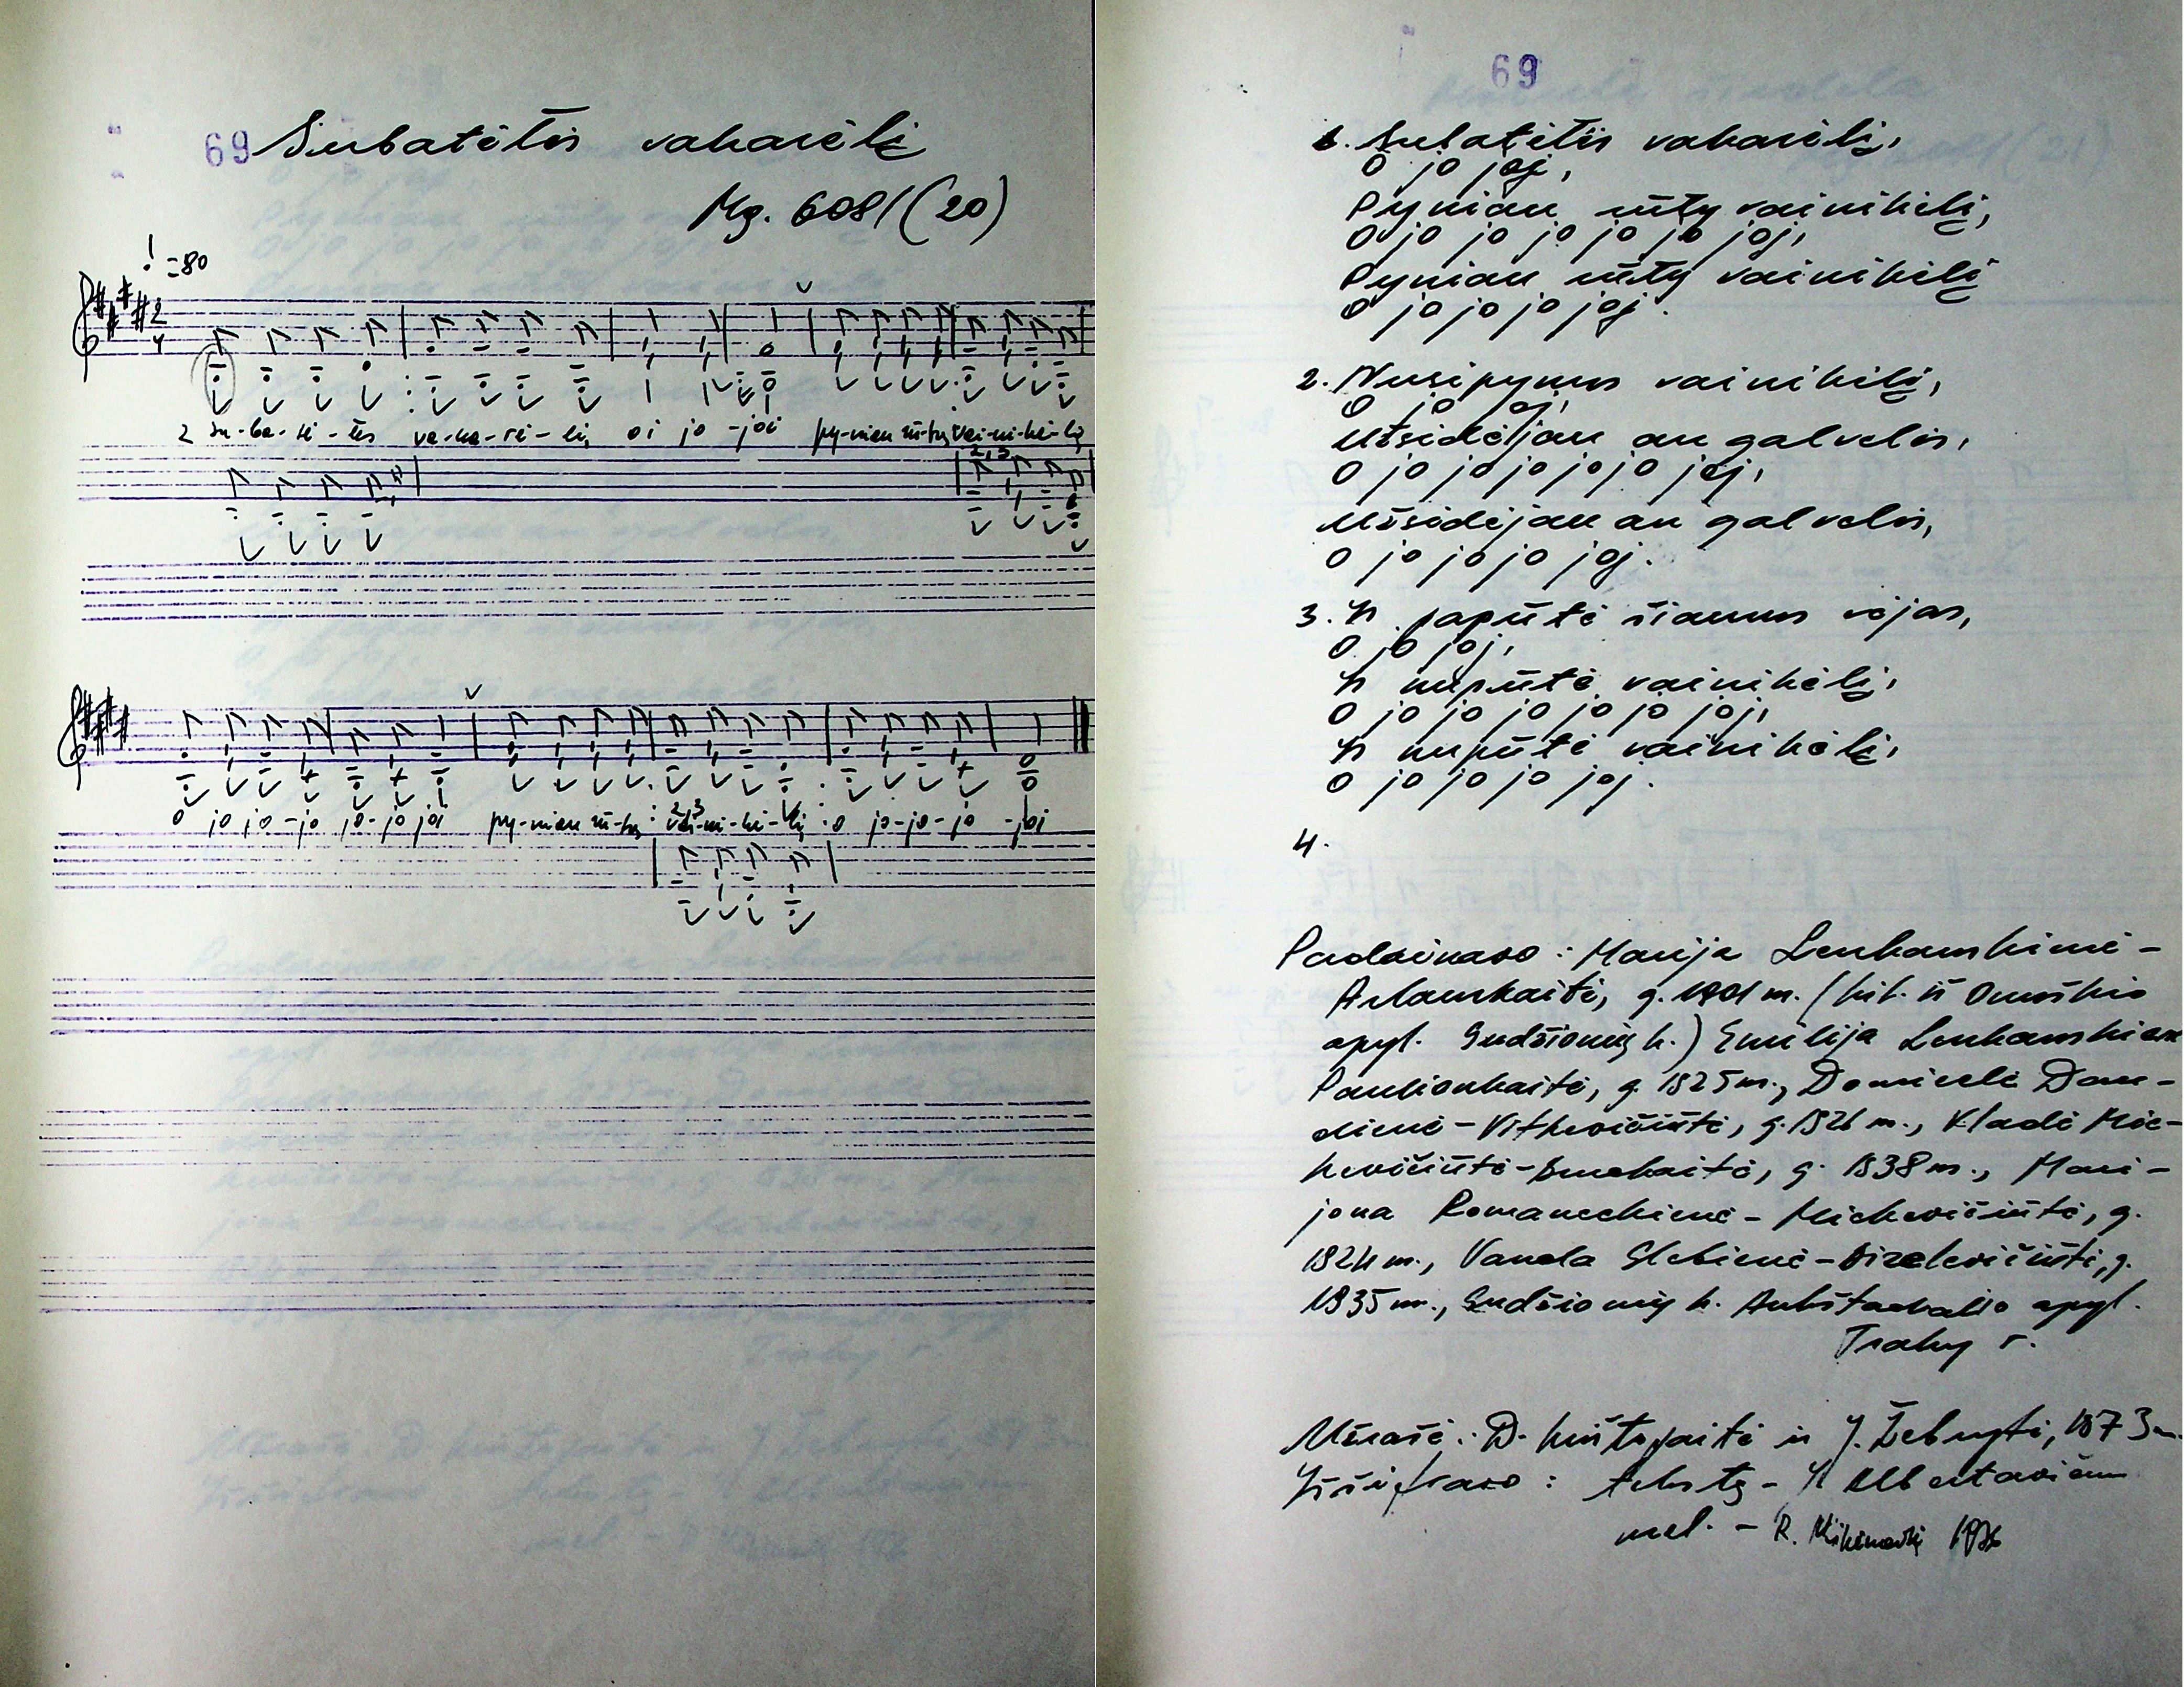 69 Subatėlės vakarėlį
Mg. 6081(20)
=80
2
4
2 Su-ba-tė-lės va-ka-rė-lį oi jo -joi py-niau rū-tų vai-ni-kė-lį
2,3
o jo jo -jo jo-jo joi py-niau rū-tų vai-ni-kė-lį o jo-jo-jo -joi
2,3
69
1. Subatėlės vakarėlį,
O jo joj,
Pyniau rūtų vainikėlį,
O jo jo jo jo jo joj,
Pyniau rūtų vainikėlį
O jo jo jo joj.
2. Nusipynus vainikėlį,
O jo oj,
Užsidėjau an galvelės,
O jo jo jo jo jo joj,
Užsidėjau an galvelės,
O jo jo jo joj.
3. Ir papūtė šiaurus vėjas,
O jo joj,
Ir nupūtė vainikėlį,
O jo jo jo jo jo joj,
Ir nupūtė vainikėlį,
O jo jo jo joj.
4.
Padainavo: Marija Lenkauskienė-
g. 1901 m. (kil. iš Onuškio
apyl. Gudžionių k.) Emilija
g. 1925 m., Domicelė Dau-
dienė-Vitkevičiūtė, g. 1926 m., Vladė Mic-
kevičiūtė- g. 1938 m., Mari-
jona Romaneckienė-Mickevičiūtė, g.
1924 m., Vanda g.
1935 m., Gudžionių k. Aukštadvario apyl.
Trakų r.
Užrašė: D. Krištopaitė ir J. Žebrytė, 1973 m.
Iššifravo: tekstą -
mel. - R. 1976